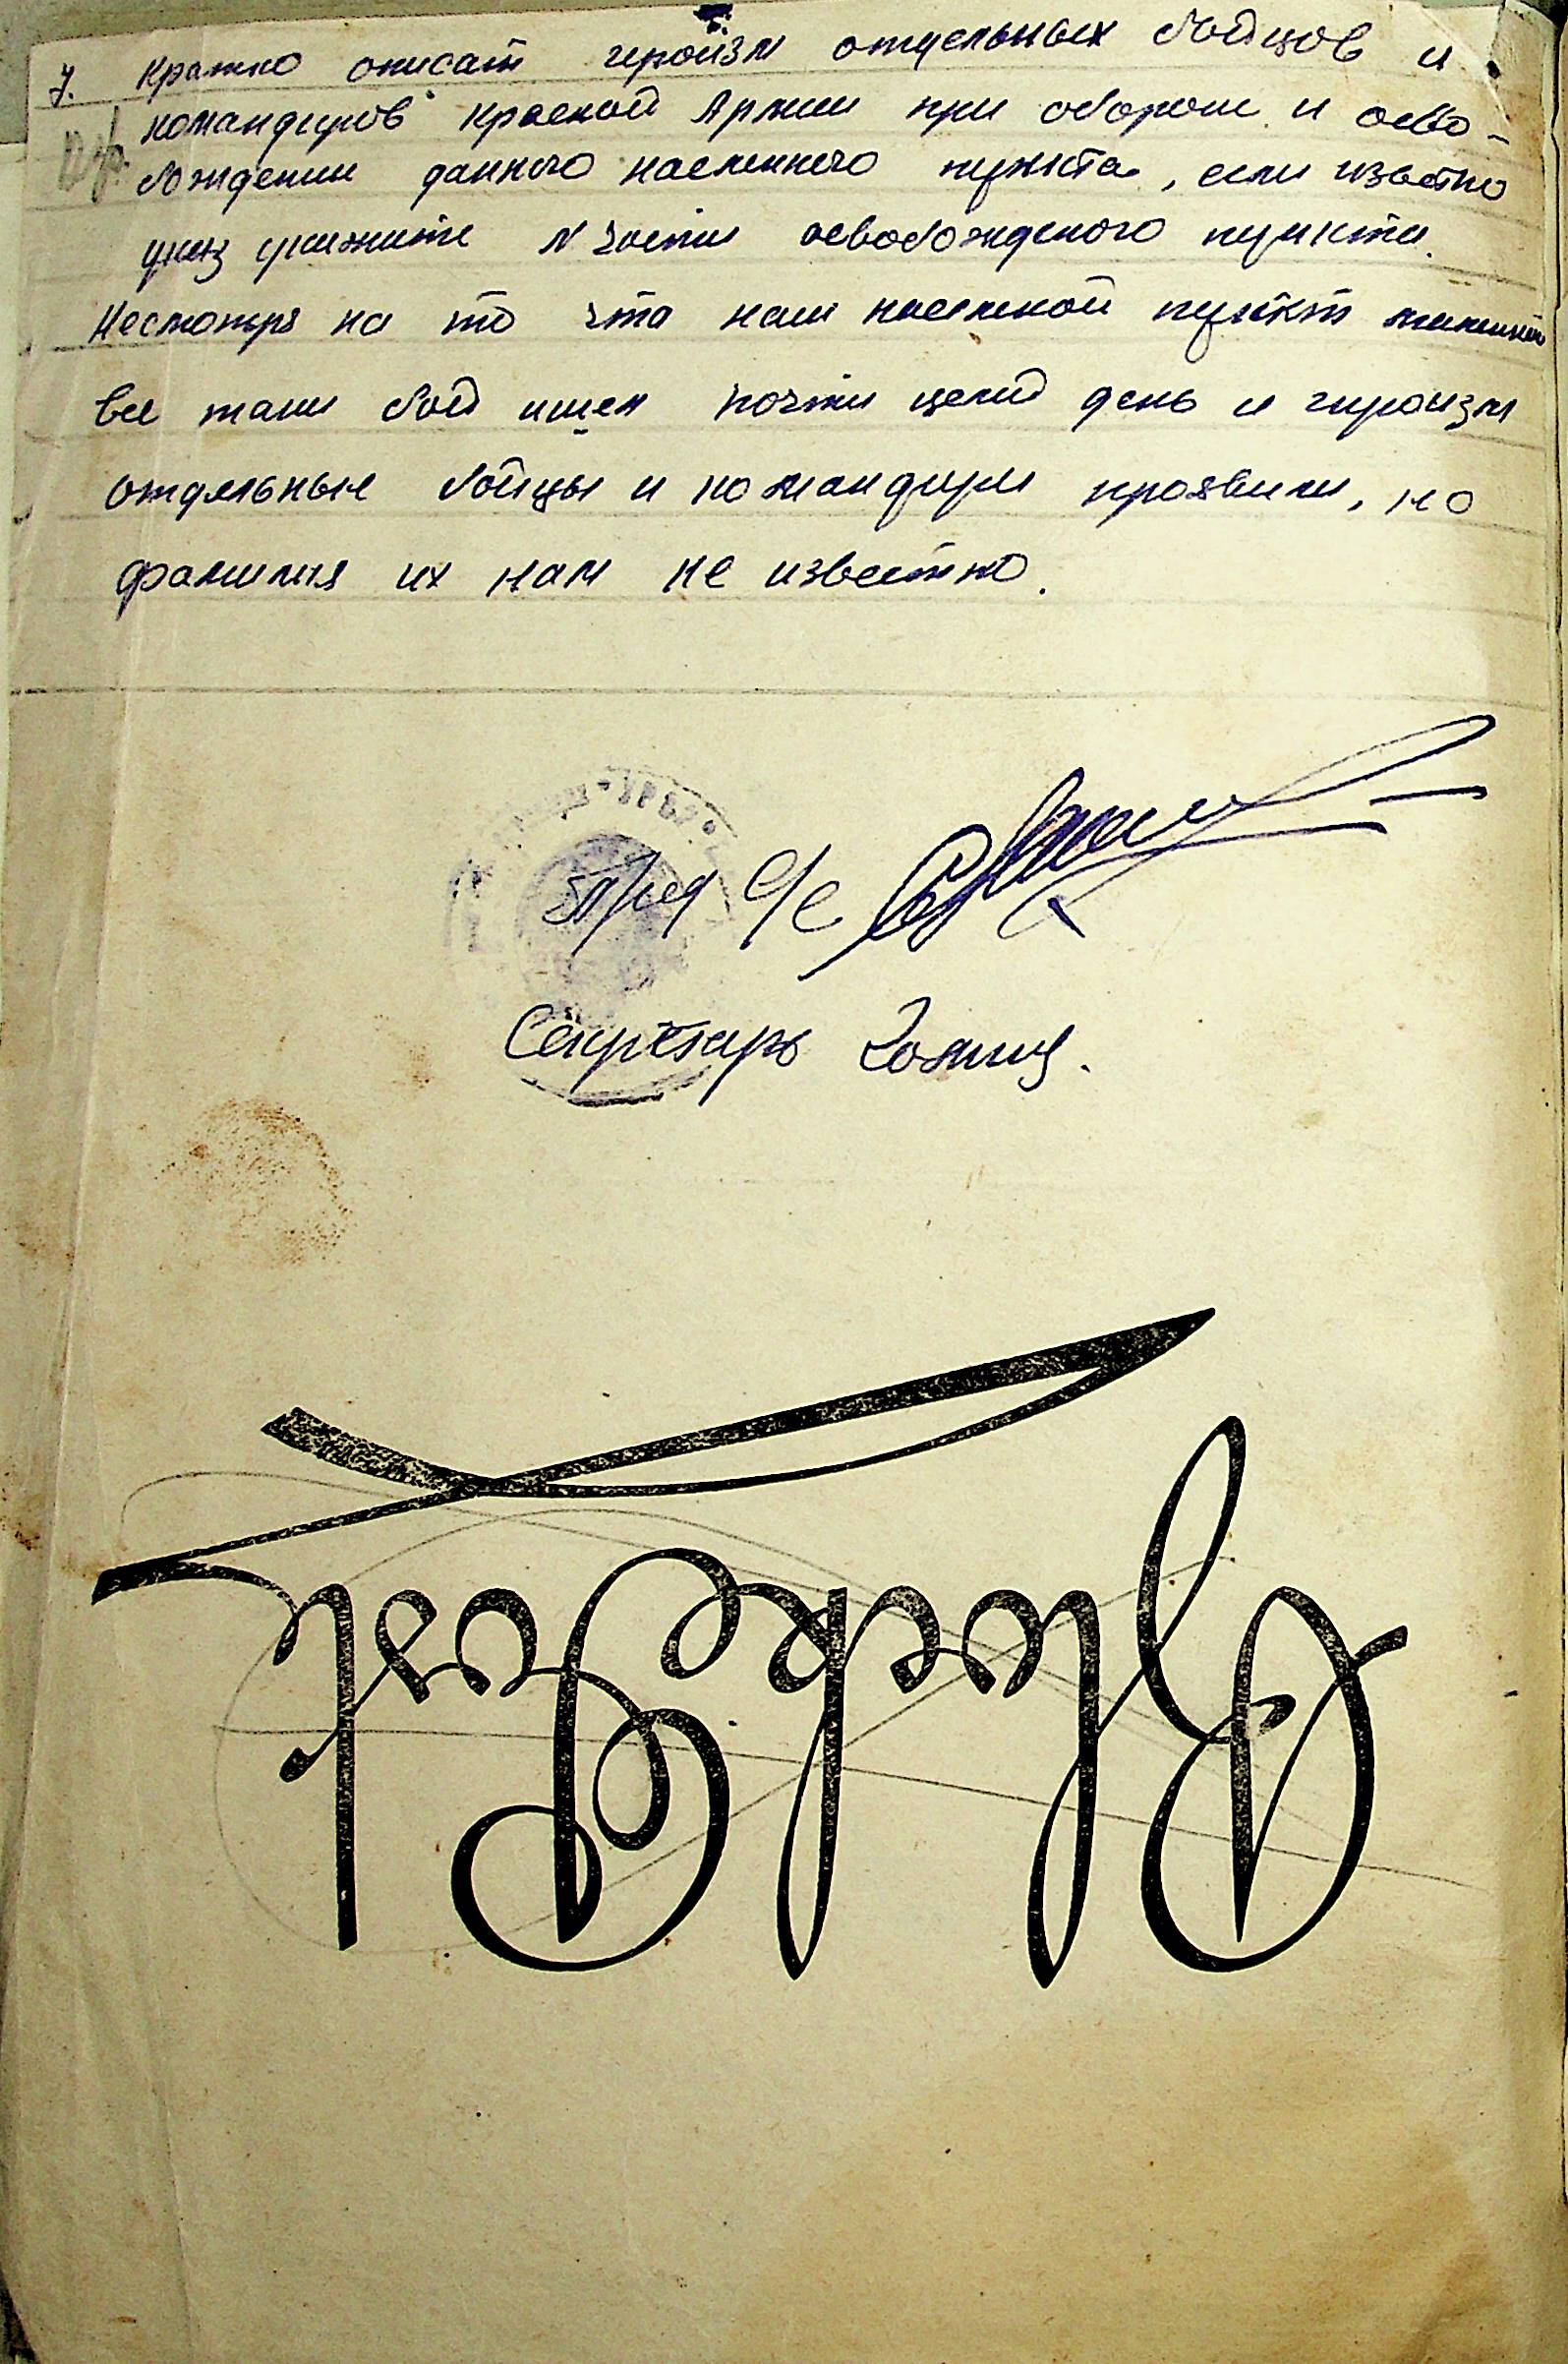 7. Кратко описат героизм отдельных бойцов и
командиров Красной Армии при обороне и осво-
бождении данного населенного пункта, если известно
укажите № части освобожденого пункта.
Несмотря на то что наш населеной пункт маленький
все таки бой ишел почти целий день и героизм
отдельные бойцы и командири проявили, но
фамилия их нам не известно.
Пред с/с
Секретарь